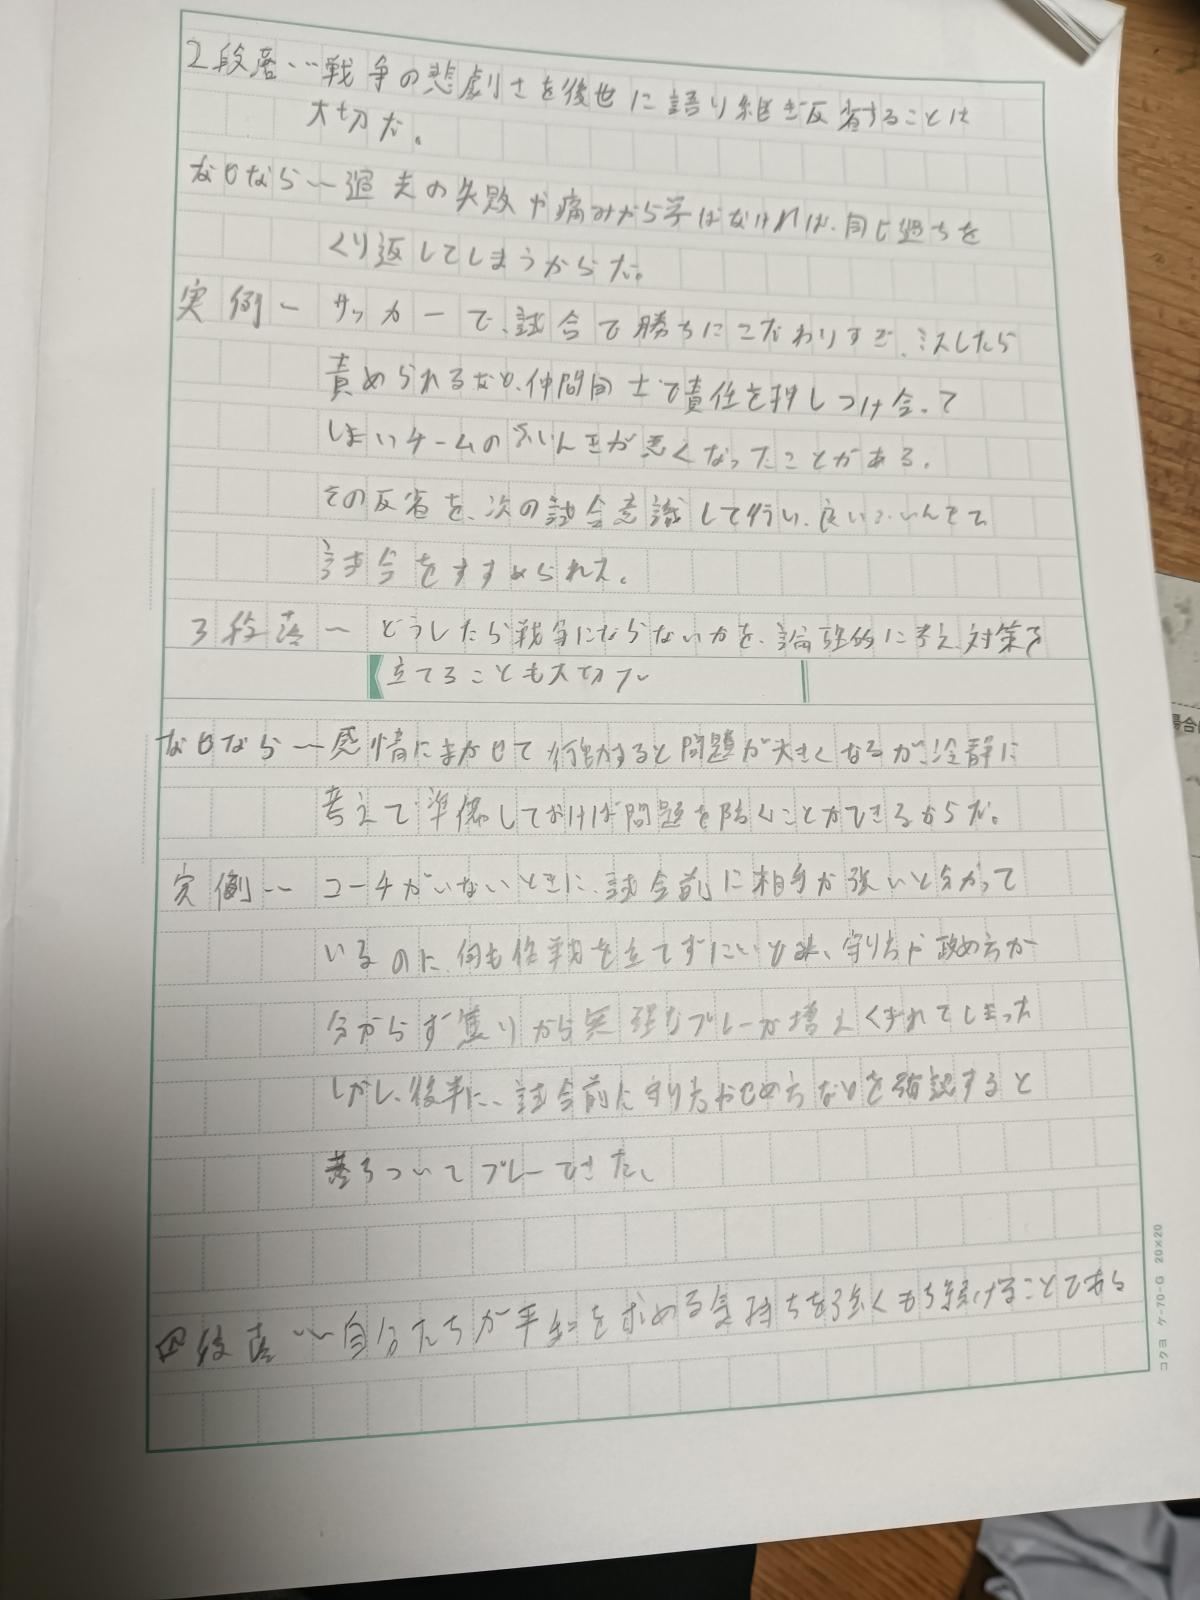 2段落…戦争の悲劇さを後世に語り継ぎ反省することは
大切だ。
なぜなら〜過去の失敗や痛みから学ばなければ、同じ過ちを
くり返してしまうからだ。
実例〜サッカーで、試合で勝ちにこだわりすぎ、ミスしたら
責められるなど、仲間同士で責任を押しつけ合って
しまいチームのふいんきが悪くなったことがある。
その反省を、次の試合意識して行い、良いふいんきで
試合をすすめられた。
3段落〜どうしたら戦争にならないかを、論理的に考え、対策を
立てることも大切だ
なぜなら〜感情にまかせて行動すると問題が大きくなるが冷静に
考えて準備しておけば問題を防ぐことができるからだ。
実例〜コーチがいないときに、試合前に相手が強いと分かって
いるのに、何も作戦を立てずにいどみ、守り方や攻め方が
分からず焦りから無理なプレーが増え くずれてしまった
しかし、後半に、試合前に守り方やせめ方などを確認すると
落ちついてプレーできた。
4段落〜自分たちが平和を求める気持ちを強くもち続けることである
コクヨ ケ-70-G 20×20
場合は